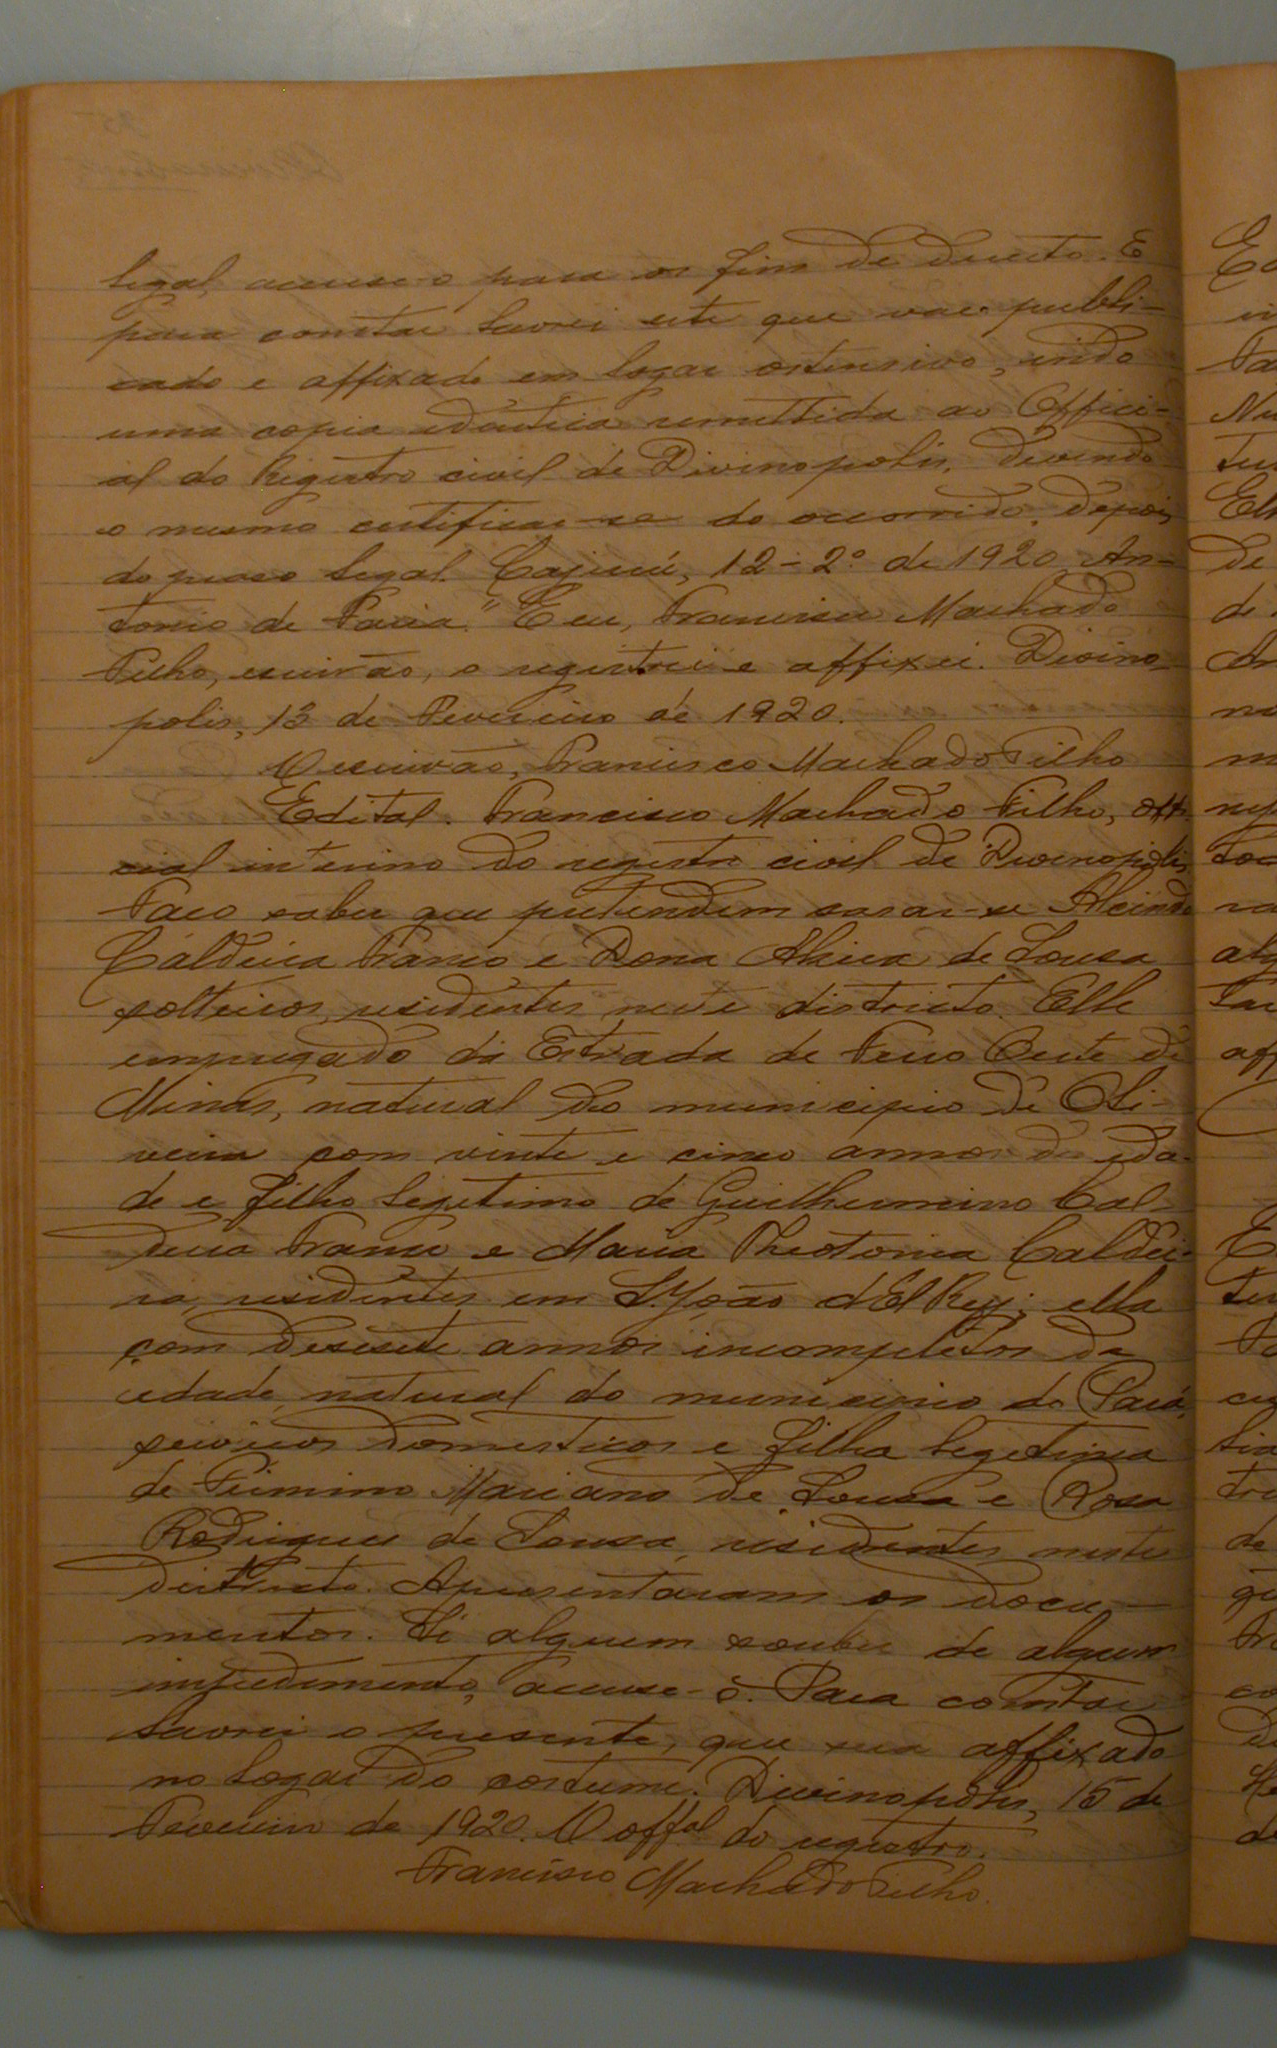 legal accuse-o para os fins de direito. E
para constar lavrei este que vae publi-
cado e affixado em logar ostensivo, indo
uma copia identica remettida ao Offici-
al do Registro civil de Divinopolis, devendo
o mesmo certificar-se do occorrido, depois
do praso legal. Cajurú, 12-2º de 1920. An-
tonio de Faria." E eu, Francisco Machado
Filho, escrivão, o registrei e affixei. Divino-
polis, 13 de Fevereiro de 1920.
O escrivão, Francisco Machado Filho
Edital. Francisco Machado Filho, offi-
cial interino do registro civil de Divinopolis
Faço saber que pretendem casar-se Alcindo
Caldeira Franco e Dona Alzira de Sousa
solteiros, residentes neste districto. Elle
empregado da Estrada de Ferro Oeste de
Minas, natural do municipio de Oli-
veira com vinte e cinco annos de ida-
de e filho legitimo de Guilhermino Cal-
deira Franco e Maria Theotonia Caldei-
ra, residentes em S. João d'El Rey; ella
com desesete annos incompletos de
edade, natural do municipio do Pará,
serviços domesticos e filha legitima
de Firmino Mariano de Sousa e Rosa
Rodrigues de Sousa, residentes neste
districto. Apresentaram os docu-
mentos. Si alguem souber de algum
impedimento, accuse-o. Para constar
lavrei o presente, que sera affixado
no logar do costume. Divinopolis, 15 de
Fevereiro de 1920. O offal do registro.
Francisco Machado Filho.